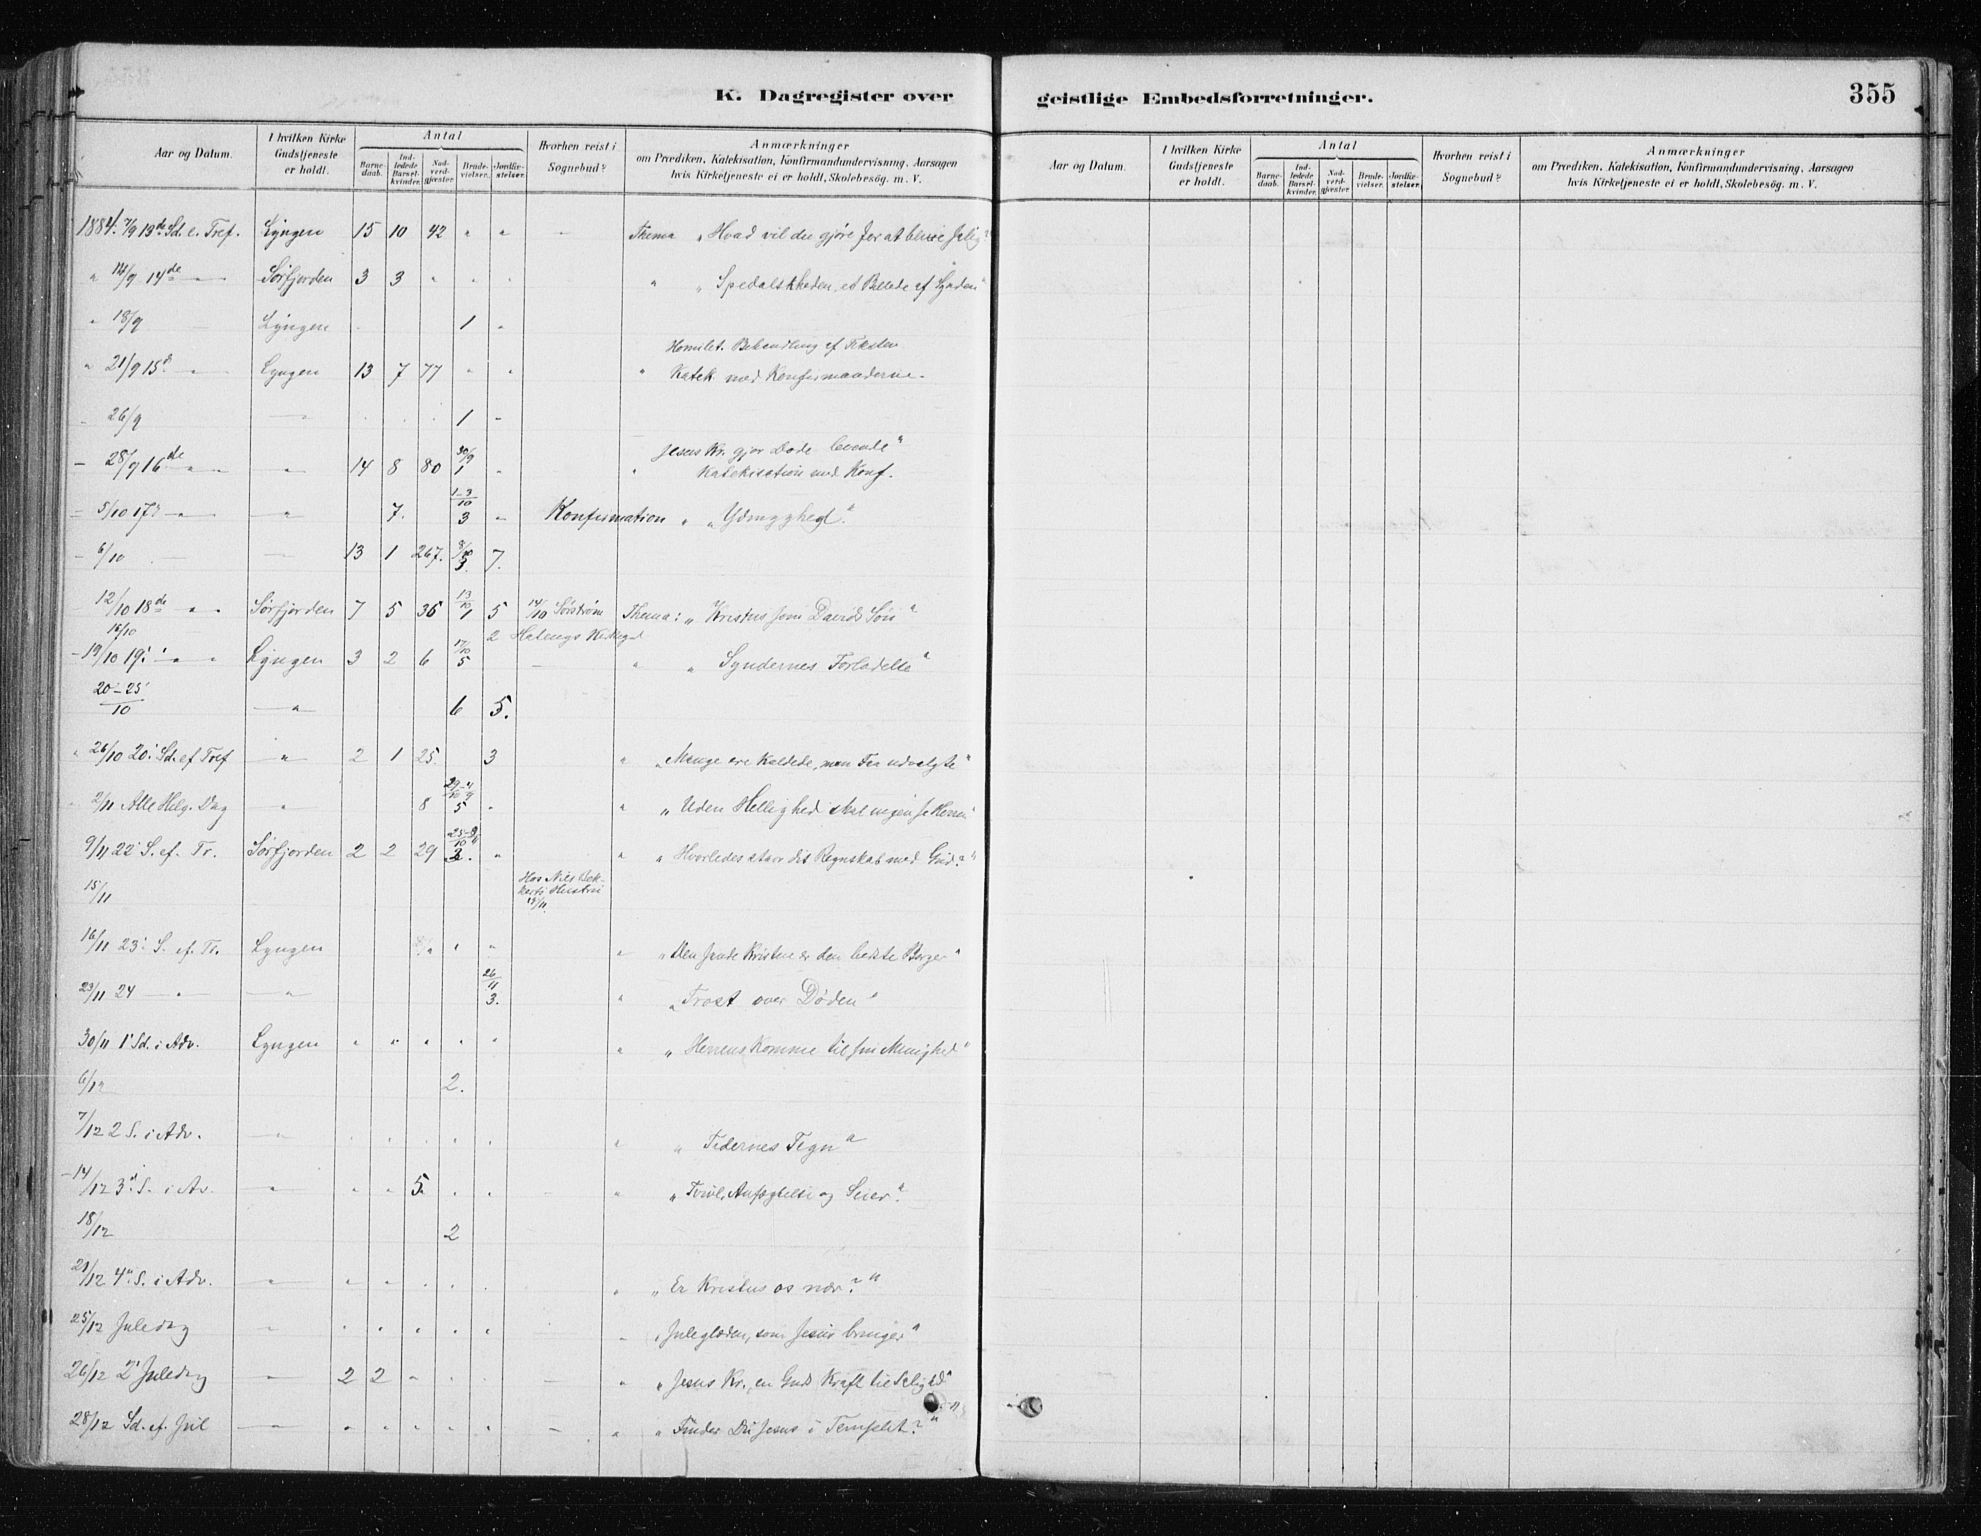 K. Dagregister over geistlige Embedsforretninger. 355
Aar og Datum. I hvilken Kirke Gudstjeneste er holdt. Antal Barnedaab. Indledede Barselkvinder. Nadverdgjæster. Brudevielser. Jordfæstelser. Hvorhen reist i Sognebud? Anmærkninger om Prædiken, Katekisation, Konfirmandundervisning, Aarsagen hvis Kirketjeneste ei er holdt, Skolebesøg. m. V.
Aar og Datum. I hvilken Kirke Gudstjeneste er holdt. Antal Barnedaab. Indledede Barselkvinder. Nadverdgjæster. Brudevielser. Jordfæstelser. Hvorhen reist i Sognebud? Anmærkninger om Prædiken, Katekisation, Konfirmandundervisning, Aarsagen hvis Kirketjeneste ei er holdt, Skolebesøg. m. V.
1884. 7/9 13de Sd. e. Tref. Lyngen 15 10 42 " " - Thema „Hvad vil du gjøre for at blive salig?"
" 14/9 14de — Sørfjorden 3 3 " " " " „Spedalskheden, et Billede af Synden"
" 18/9 Lyngen 1 "
Homilet. Behandling af Teksten
" 21/9 15d " Lyngen 13 7 77 " " " Katek. med Konfirmanderne.
- 26/9 — 1 -
Jesus Kr. gjør Døde levende"
- 28/9 16de " " " 14 8 80 30/9 1 " " Katekisation med Konf.
- 5/10 17d " " 7. 1-3/10 3 - Konfirmation " „Ydmyghed."
- 6/10 — 13 1 267. 8/10 3. 7.
- 12/10 18de " " Sørfjorden 7 5 36 13/10 1 5 14/10 Sørstrøm Thema: „Kristus som Davids Søn"
16/10 2
- 19/10 19' " " Lyngen 3 2 6 17/10 5 - " „Syndernes Forladelse"
20-25/10 " 6 5.
" 26/10 20' Sd. ef Tref " 2 1 25. 3 " „Mange ere kaldede, men Faa udvalgte"
" 2/11 Alle Helg. Dag " 8 5 " " „Uden Hellighed skal ingen se Herren"
9/11 22' S. ef. Tr. Sørfjorden 2 2 29 3. " " „Hvorledes staar dit Regnskab med Gud?"
15/11 Hos Nils Hustru 13/11.
16/11 23' S. ef. Tr. Lyngen " " " " „Den sande Kristne er den bedste Borger"
23/11 24 — " " 26/11 3. " „Trøst over Døden"
30/11 1' Sd. i Adv. Lyngen " " " " " " „Herrens Komme til sin Menighed"
6/12 2.
7/12 2 S. i Adv. " " " " " " " „Tidernes Tegn"
- 14/12 3d S. i Av. " " " 5. " " - " „Tvivl, Anfægtelse og Seier."
18/12 2
21/12 4' S. i Adv. " " " " " " " „Er Kristus os nær?"
25/12 Juledag " " " " " " " „Juleglæden, som Jesus bringer"
26/12 2' Juledag " 2 2 " " " - " „Jesus Kr., en Guds Kraft til Salighed"
28/12 Sd. ef. Jul " " " " " " - " „Finder Du Jesus i Templet?"